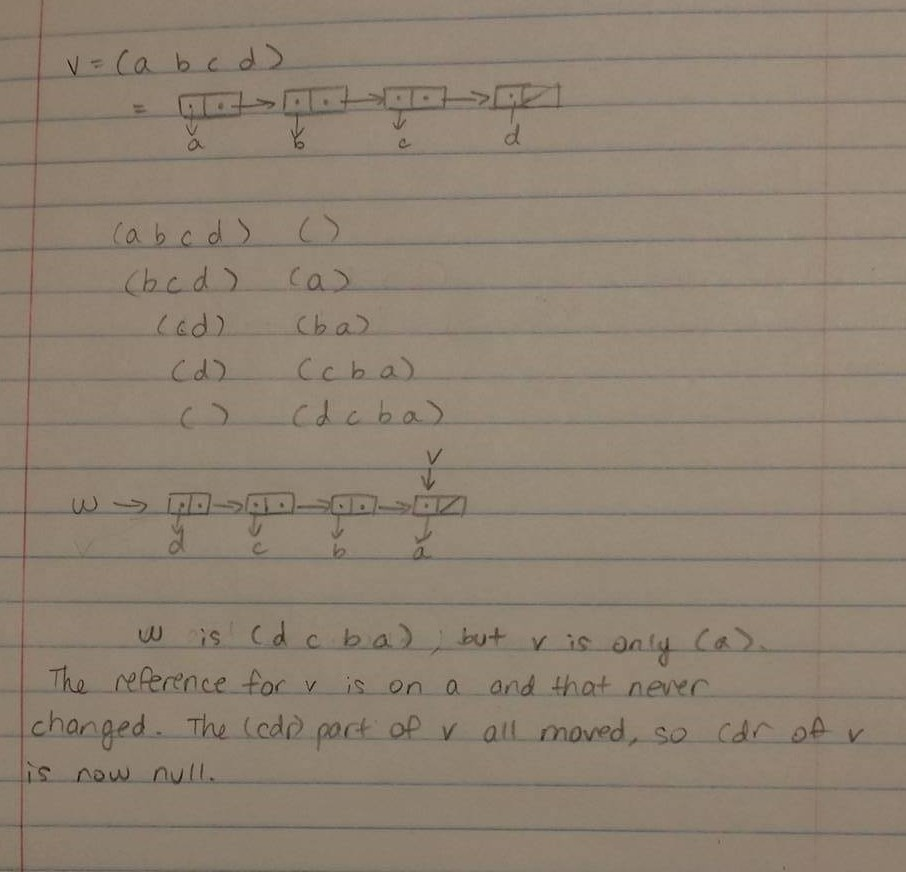 v = (a b c d)
=
a b c d
(a b c d) ()
(b c d) (a)
(c d) (b a)
(d) (c b a)
() (d c b a)
v
w
d c b a
w is (d c b a), but v is only (a).
The reference for v is on a and that never
changed. The (cdr) part of v all moved, so cdr of v
is now null.